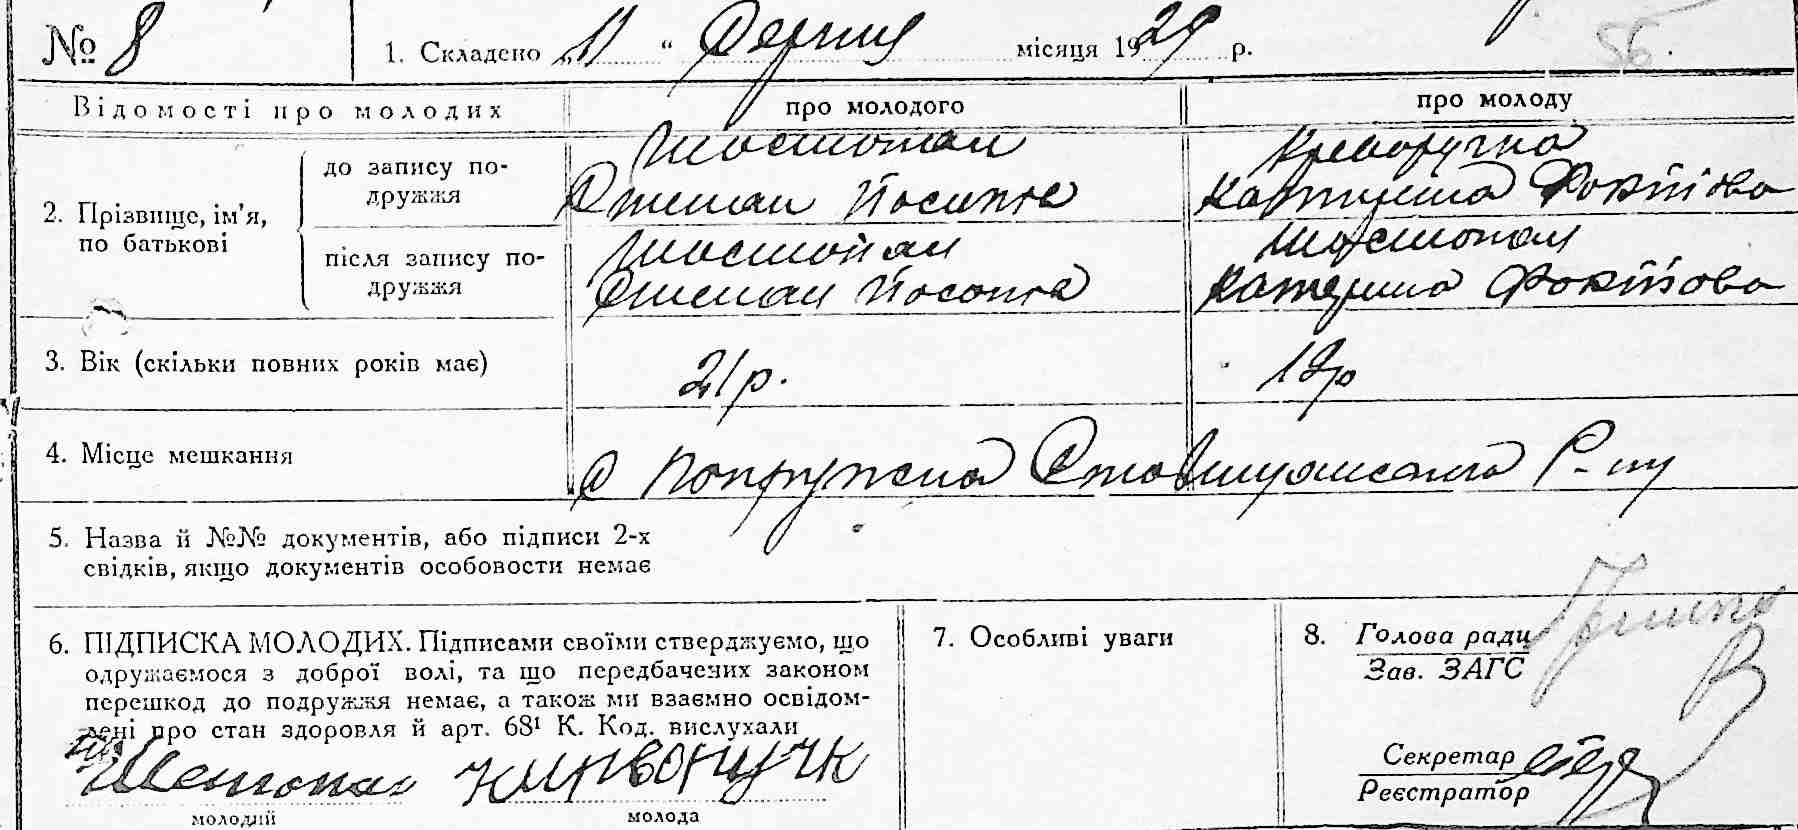 № 8
1. Складено „11“ Серпня місяця 1929 р.
56.
Відомості про молодих
про молодого
про молоду
2. Прізвище, ім’я, по батькові
до запису подружжя
Шостопал
Степан Йосипів
Криворучка
Катерина Фоктіова
після запису подружжя
Шостопал
Степан Йосипів
Шостопал
Катерина Фоктіова
3. Вік (скільки повних років має)
21р.
18р
4. Місце мешкання
с Попружна Ставищанського Р-ну
5. Назва й №№ документів, або підписи 2-х
свідків, якщо документів особовости немає
6. ПІДПИСКА МОЛОДИХ. Підписами своїми стверджуємо, що
одружаємося з доброї волі, та що передбачених законом
перешкод до подружжя немає, а також ми взаємно освідом-
лені про стан здоровля й арт. 68¹ К. Код. вислухали
Шостопал
молодий
молода
7. Особливі уваги
8. Голова ради
Зав. ЗАГС
Секретар
Реєстратор